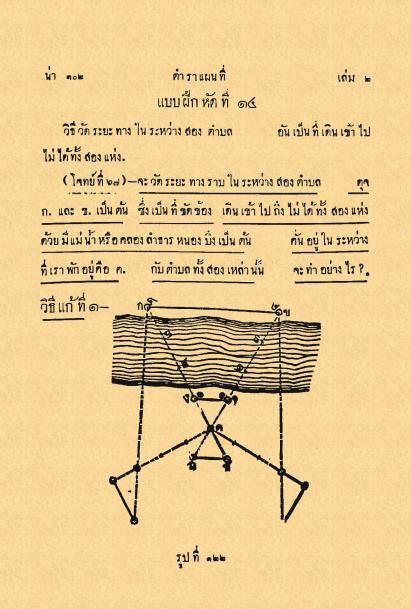 น่า ๑๐๒ ตำราแผนที่ เล่ม ๒
แบบฝึกหัดที่ ๑๔
วิธีวัดระยะทางในระหว่างสองตำบล อันเป็นที่เดินเข้าไป
ไม่ได้ทั้งสองแห่ง.
(โจทย์ที่ ๖๗)—จะวัดระยะทางราบในระหว่างสองตำบล ดุจ
ก. และ ข. เป็นต้น ซึ่งเป็นที่ขัดข้อง เดินเข้าไปถึงไม่ได้ทั้งสองแห่ง
ด้วยมีแม่น้ำหรือคลองลำธารหนองบึงเป็นต้น คั่นอยู่ในระหว่าง
ที่เราพักอยู่คือ ค. กับตำบลทั้งสองเหล่านั้น จะทำอย่างไร?.
วิธีแก้ที่ ๑—
ก
ข
ค
รูปที่ ๑๒๒